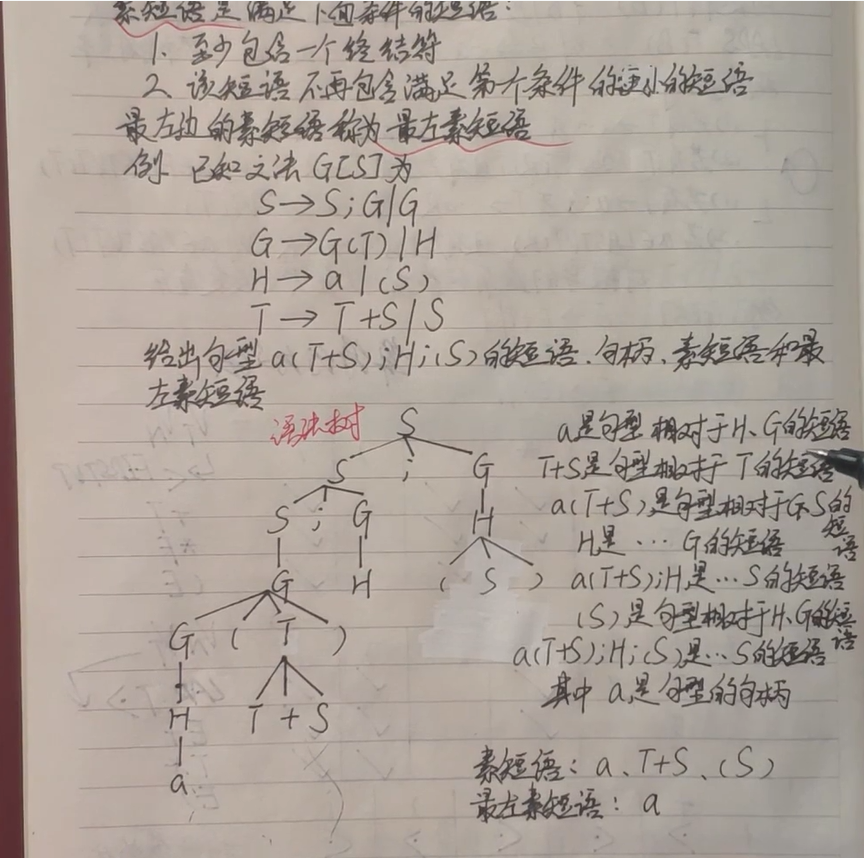 素短语是满足下面条件的短语:
1. 至少包含一个终结符
2、该短语不再包含满足第一个条件的更小的短语
最左边的素短语称为最左素短语
例. 已知文法G[S]为
S→S;G|G
G→G(T)|H
H→a|(S)
T→T+S|S
给出句型a(T+S);H;(S)的短语、句柄、素短语和最
左素短语
语法树
S
S ; G
S ; G H
G H ( S )
G ( T )
H T + S
a
a是句型相对于H、G的短语
T+S是句型相对于T的短语
a(T+S)是句型相对于G、S的短语
H是…G的短语
a(T+S);H是…S的短语
(S)是句型相对于H、G的短语
a(T+S);H;(S)是…S的短语
其中a是句型的句柄
素短语: a、T+S、(S)
最左素短语: a